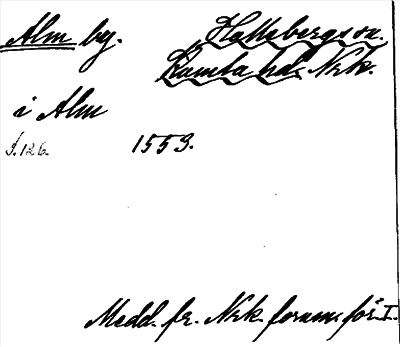 Alm by. Hallsbergs sn.
Kumla hd. Nrk.
i Alm
S.126. 1553.
Medd. fr. Nrk. fornm. för. I.